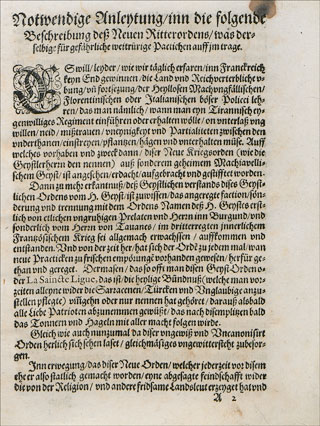 Notwendige Anleytung/inn die folgende
Beschreibung deß Neuen Ritterordens/was der-
selbige für gefährliche weitrürige Pacticken auff im trage.
ES will/leyder/wie wir täglich erfaren/inn Franckreich
keyn End gewinnen/die Land und Reichverterbliche v-
bung/vñ fortsezung/der Heyllosen Machyavällischen/
Florentinischen oder Italianischen böser Policei leh-
ren/das man nämlich/wann man eyn Tirannisch ey-
genwilliges Regiment einführen oder erhalten wölle/
willen/neid/mißtrauen/vneynigkeyt und Partialiteten zwischen den
underthanen/einstreyen/pflanzen/hägen und vnterhalten müse. Auff
welches vorhaben und zweck dann/diser Neue Kriegsorden (wie jn
Geystlern den nennen) auß sonderen geheymem Machiavelli-
schem Geyst/ist angesehen/erdacht/aufgebracht und gestifftet worden.
Dann zu mehr erkantnuß/deß Geystlichen verstands dises Geyst-
lichen Ordens vom H. Geyst/ist zuwissen/das angeregte faction/sön-
derung und trennung mit dem Ordens Namen deß H. Geystes erst-
lich von etlichen vngruhigen Prelaten und Herrn inn Burgund/und
sonderlich vom Herrn von Tauanes/im dritteregten jnnerlichem
Französischem Krieg sei allgemach erwachssen/auffkommen und
entstanden. Und von der zeit her/hat sich der Ordē zu jedem mal/wan
neue Practicken zu frischen empörungē vorhanden gewesen/herfür ge-
than und gereget. Dermasen/das so offt man disen Geyst-Orden o-
der La Saincte Ligue, das ist/die heylige Bündnuß (welche man vor-
zeiten alleyn wider die Saracenen/Türcken und Vnglaubige anzu-
stellen pflegte) 
alle Liebe Patrioten abzunemmen gewüßt/das nach disem plizen bald
das Tonnern und Hageln mit aller macht folgen würde.
Gleich wie auch nunzumal da diser vngewiß und Vncanonisirt
Orden herlich sich sehen laset/gleichmäsiges vngewitter steht zubesor-
gen.
Inn erwegung/das diser Neue Orden/welcher jederzeit vor disem
eher also statlich gemacht worden/eyne abgesagte feindschafft wider
die von der Religion/und andere fridsame Landsleut erzeyget hat und
A 2